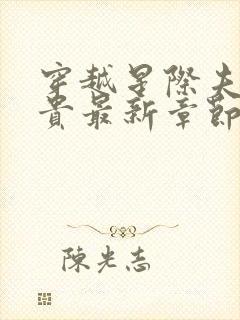 穿越星際夫
貴最新章節
陳光志